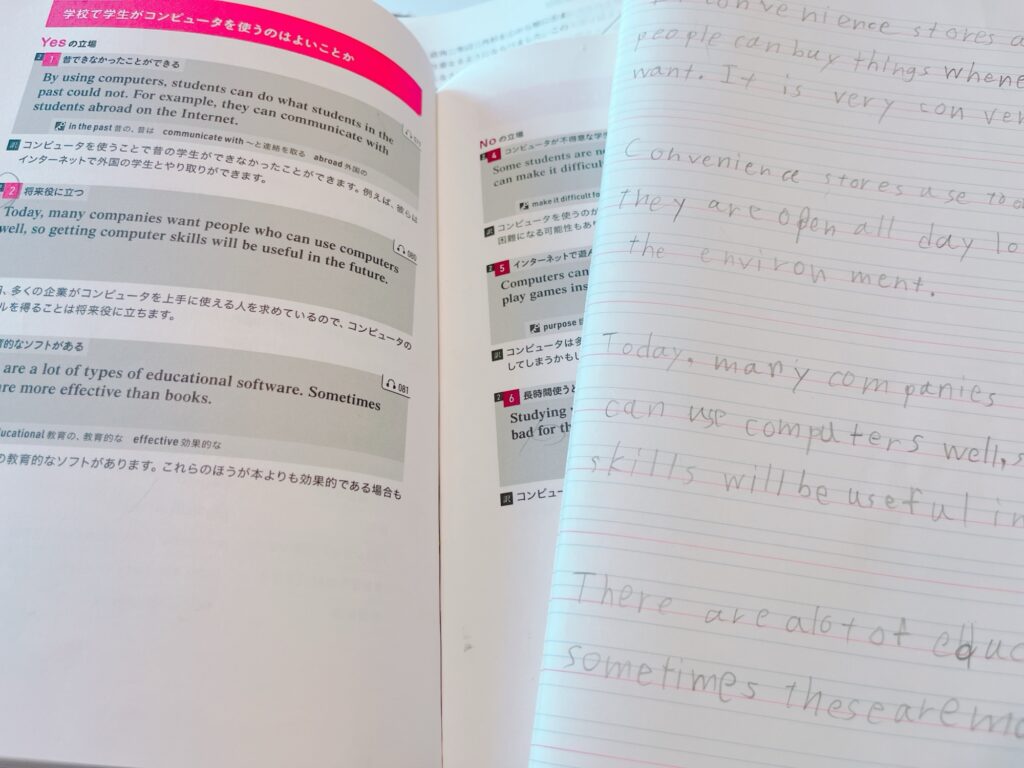 学校で学生がコンピュータを使うのはよいことか
Yes の立場
1 昔できなかったことができる
By using computers, students can do what students in the
past could not. For example, they can communicate with
students abroad on the Internet.
in the past 昔の、昔は communicate with ~と連絡を取る abroad 外国の
訳 コンピュータを使うことで昔の学生ができなかったことができます。例えば、彼らは
インターネットで外国の学生とやり取りができます。
2 将来役に立つ
Today, many companies want people who can use computers
well, so getting computer skills will be useful in the future.
080
多くの企業がコンピュータを上手に使える人を求めているので、コンピュータの
ルを得ることは将来役に立ちます。
的なソフトがある
are a lot of types of educational software. Sometimes
are more effective than books.
081
educational 教育の、教育的な effective 効果的な
の教育的なソフトがあります。これらのほうが本よりも効果的である場合も
No の立場
4 コンピュータが不得意な学生
Some students are no
can make it difficul
make it difficult fo
訳 コンピュータを使うのが
困難になる可能性もあり
5 インターネットで遊ん
Computers can
play games ins
purpose
訳 コンピュータは多
してしまうかもし
6 長時間使うと
Studying
bad for th
訳 コンピュー
convenience stores a
people can buy things whene
want. It is very con ver
Convenience stores use too
they are open all day lo
the environ ment.
Today, many companies
can use computers well, s
skills will be useful in
There are alot of educ
sometimes these are mo